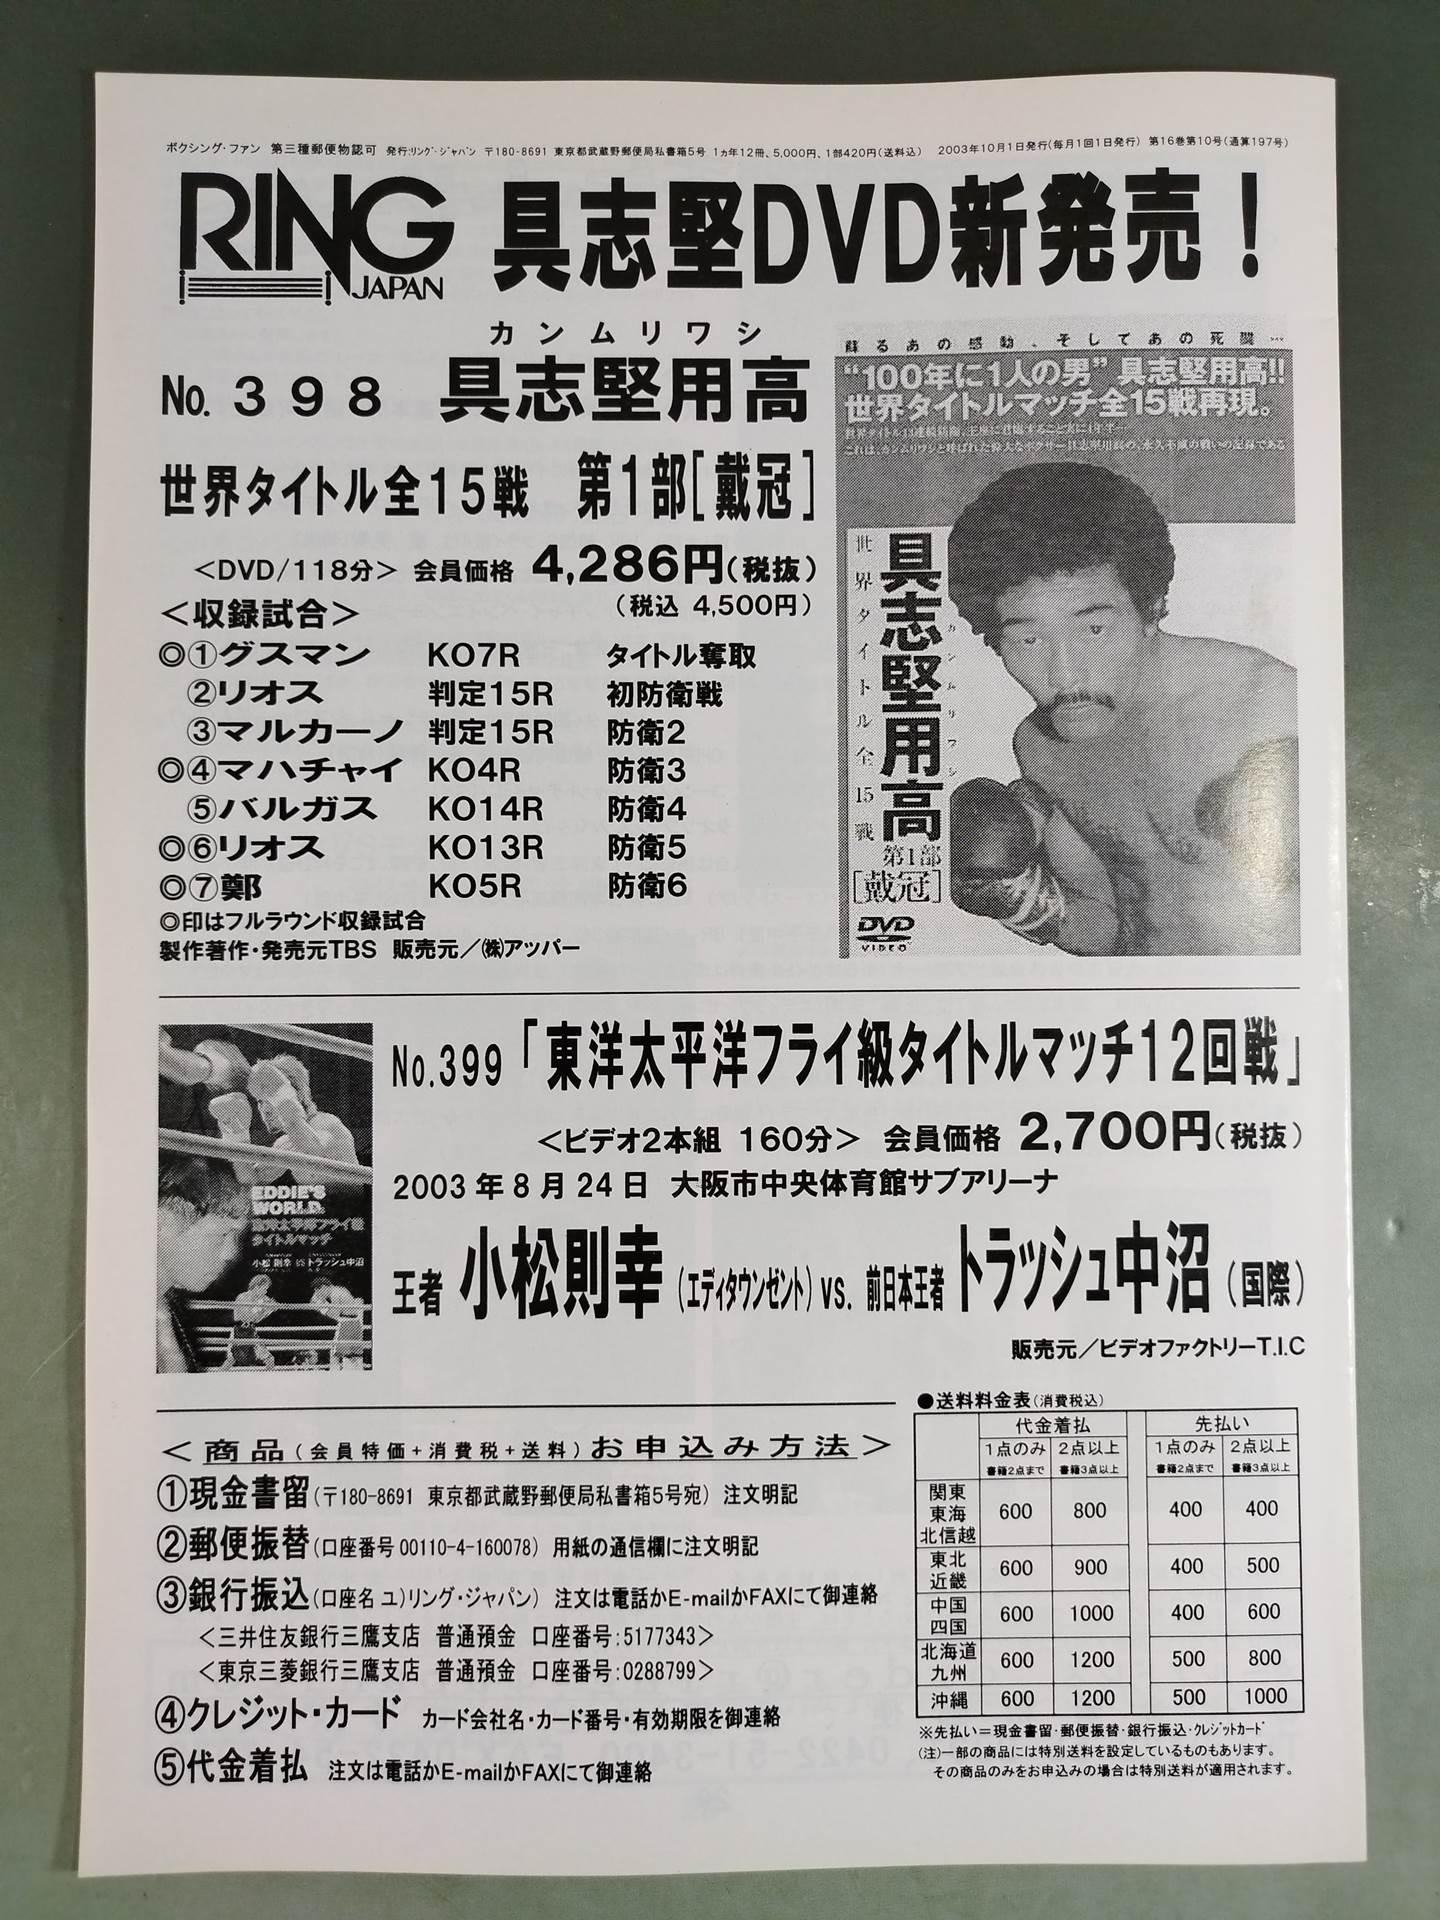 ボクシング・ファン 第三種郵便物認可 発行:リング・ジャパン 〒180-8691 東京都武蔵野郵便局私書箱5号 1ヵ年12冊、5,000円、1部420円(送料込) 2003年10月1日発行(毎月1回1日発行) 第16巻第10号(通算197号)
RING JAPAN
具志堅DVD新発売!
カンムリワシ
No.398 具志堅用高
世界タイトル全15戦 第1部[戴冠]
<DVD/118分> 会員価格 4,286円(税抜)
(税込 4,500円)
<収録試合>
◎①グスマン KO7R タイトル奪取
②リオス 判定15R 初防衛戦
③マルカーノ 判定15R 防衛2
◎④マハチャイ KO4R 防衛3
⑤バルガス KO14R 防衛4
◎⑥リオス KO13R 防衛5
◎⑦鄭 KO5R 防衛6
◎印はフルラウンド収録試合
製作著作・発売元TBS 販売元/㈱アッパー
蘇るあの感動、そしてあの死闘…
"100年に1人の男"具志堅用高!!
世界タイトルマッチ全15戦再現。
世界タイトル全15戦
具志堅用高
カンムリワシ
第1部
[戴冠]
DVD
VIDEO
No.399「東洋太平洋フライ級タイトルマッチ12回戦」
<ビデオ2本組 160分> 会員価格 2,700円(税抜)
2003年8月24日 大阪市中央体育館サブアリーナ
王者 小松則幸(エディタウンゼント) vs. 前日本王者 トラッシュ中沼(国際)
販売元/ビデオファクトリーT.I.C
EDDIE'S
WORLD.
東洋太平洋フライ級
タイトルマッチ
小松 則幸 VS トラッシュ中沼
<商品(会員特価+消費税+送料)お申込み方法>
①現金書留(〒180-8691 東京都武蔵野郵便局私書箱5号宛) 注文明記
②郵便振替(口座番号00110-4-160078) 用紙の通信欄に注文明記
③銀行振込(口座名 ユ)リング・ジャパン) 注文は電話かE-mailかFAXにて御連絡
<三井住友銀行三鷹支店 普通預金 口座番号:5177343>
<東京三菱銀行三鷹支店 普通預金 口座番号:0288799>
④クレジット・カード カード会社名・カード番号・有効期限を御連絡
⑤代金着払 注文は電話かE-mailかFAXにて御連絡
●送料料金表(消費税込)
代金着払 先払い
1点のみ 2点以上 1点のみ 2点以上
書籍2点まで 書籍3点以上 書籍2点まで 書籍3点以上
関東
東海 600 800 400 400
北信越
東北
近畿 600 900 400 500
中国
四国 600 1000 400 600
北海道
九州 600 1200 500 800
沖縄 600 1200 500 1000
※先払い=現金書留・郵便振替・銀行振込・クレジットカード
(注)一部の商品には特別送料を設定しているものもあります。
その商品のみをお申込みの場合は特別送料が適用されます。